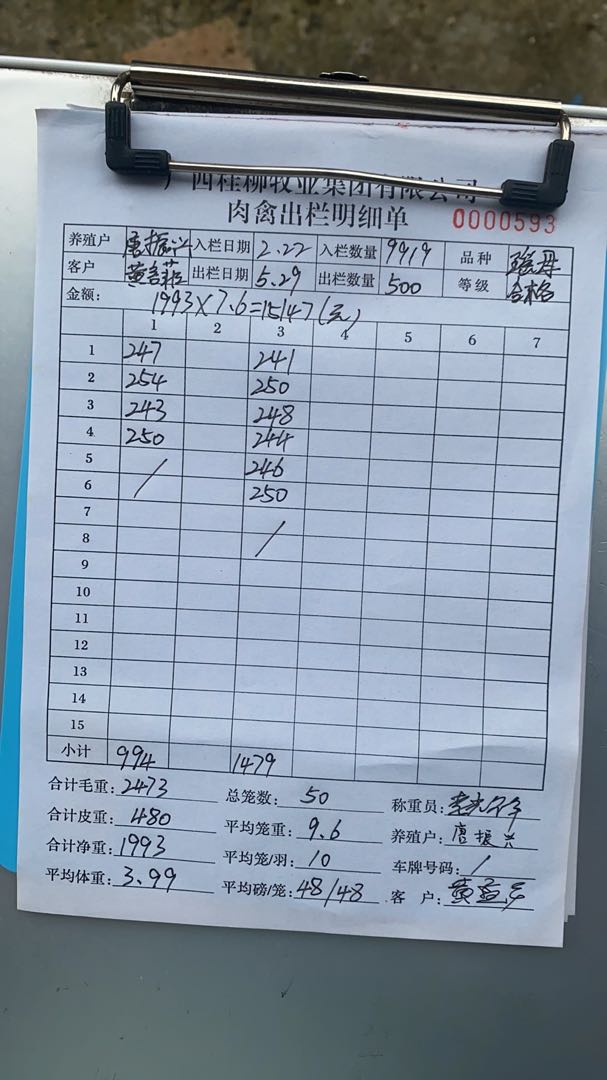 广西桂柳牧业集团有限公司
肉禽出栏明细单 0000593
养殖户 唐振兴 入栏日期 2.22 入栏数量 9919 品种
客户 出栏日期 5.29 出栏数量 500 等级 合格
金额: 1993×7.6=15147(元)
1 2 3 4 5 6 7
1 247 241
2 254 250
3 243 248
4 250 244
5 / 246
6 250
7
8 /
9
10
11
12
13
14
15
小计 994 1479
合计毛重: 2473 总笼数: 50 称重员:
合计皮重: 480 平均笼重: 9.6 养殖户: 唐振兴
合计净重: 1993 平均笼/羽: 10 车牌号码: /
平均体重: 3.99 平均磅/笼: 48/48 客 户: